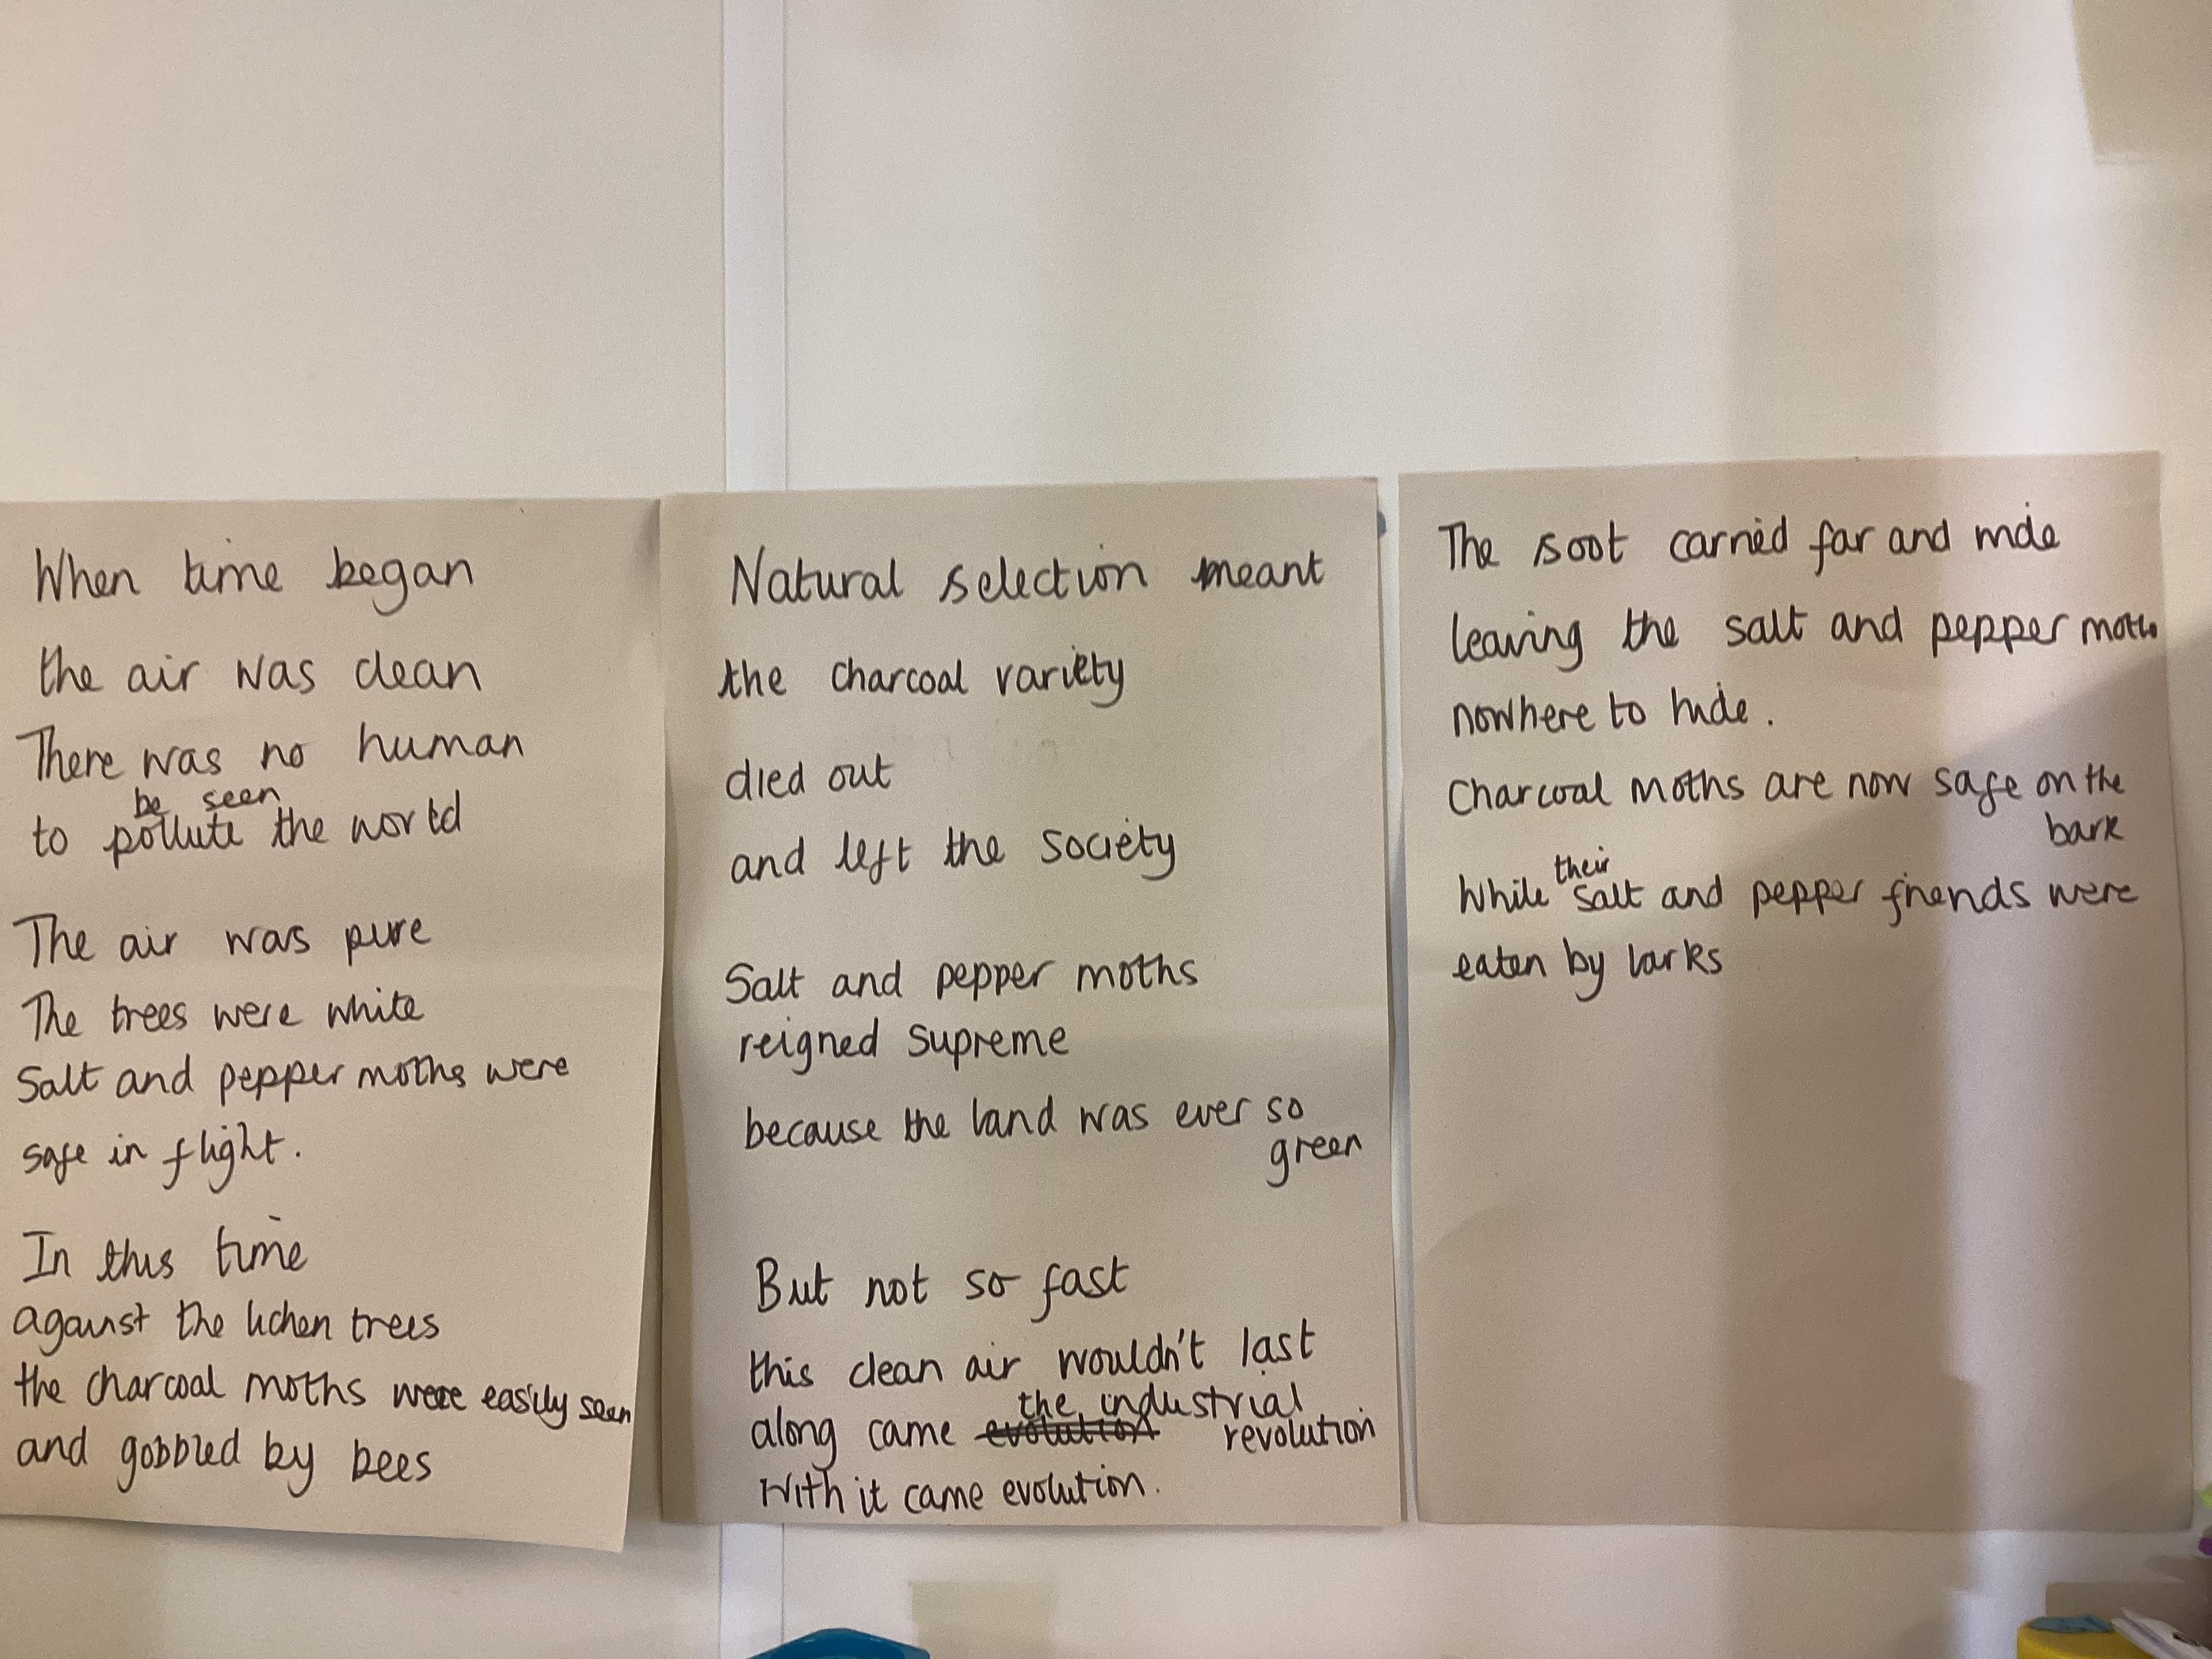 When time began
the air was clean
There was no human
be seen
to pollute the world
The air was pure
The trees were white
Salt and pepper moths were
safe in flight.
In this time
against the lichen trees
the charcoal moths were easily seen
and gobbled by bees
Natural selection meant
the charcoal variety
died out
and left the society
Salt and pepper moths
reigned supreme
because the land was ever so
green
But not so fast
this clean air wouldn't last
the industrial
along came evolution revolution
With it came evolution.
The soot carried far and wide
leaving the salt and pepper moths
nowhere to hide.
Charcoal moths are now safe on the
bark
their
While salt and pepper friends were
eaten by larks